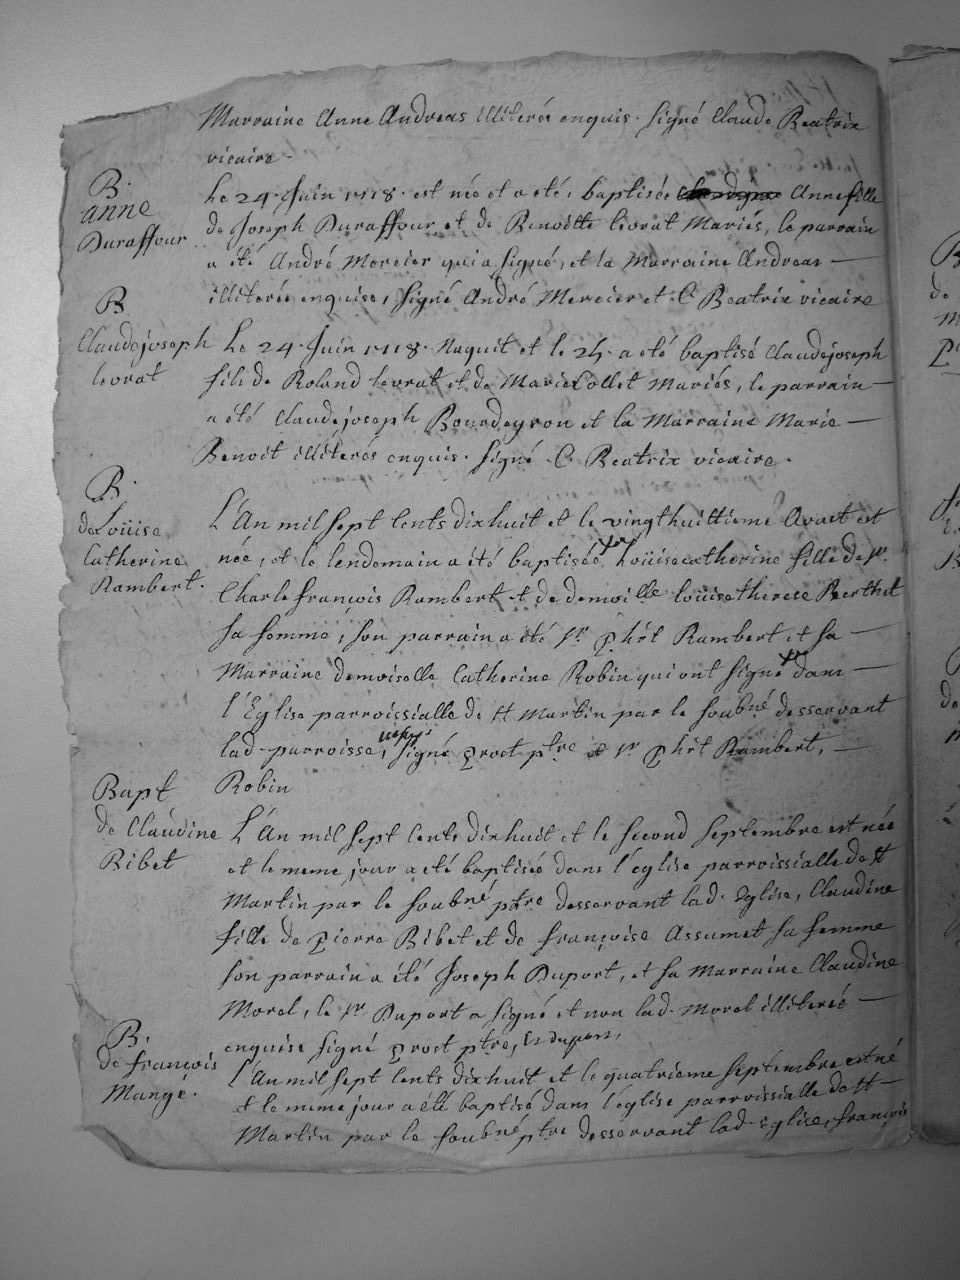 Marraine Anne Andreas illiterée enquis. signé Claude Beatrix
vicaire.
B.
anne
Duraffour
Le 24. Juin 1718. est née et a été, baptisée Anne fille
de Joseph Duraffour et de Benoitte Levrat Mariés, le parrain
a été André Mercier qui a signé, et la Marraine Andreas
illiterée enquise, signé André Mercier et C. Beatrix vicaire
B
Claudejoseph
Levrat
Le 24. Juin 1718. Naquit et le 25. a été baptisé Claudejoseph
fils de Roland Levrat et de Marie Collet Mariés, le parrain
a été Claudejoseph Bourdeyron et la Marraine Marie
Benoit illiterés enquis. signé C. Beatrix vicaire.
B.
de Loüise
Catherine
Rambert.
L'An mil sept cents dixhuit et le vingthuittieme Avost est
née, et le lendemain a été baptisée Loüisecatherine fille de sr.
Charlefrançois Rambert et de demoille loüisetherese Berthet
sa femme, son parrain a été sr. phrt Rambert et sa
Marraine demoiselle Catherine Robin qui ont signé dans
l'Eglise parroissialle de St Martin par le soubné desservant
lad. parroisse, signé prost ptre et sr phrt Rambert,
Robin
Bapt
de Claudine
Bibet
L'An mil sept cents dixhuit et le second septembre est née
et le meme jour a été baptisée dans l'eglise parroissialle de St
Martin par le soubné ptre desservant lad. Eglise, Claudine
fille de pierre Bibet et de françoise Assumet sa femme
son parrain a été Joseph Duport, et sa Marraine Claudine
Morel, le sr Duport a signé et non lad. Morel illiterée
enquise signé prost ptre, et duport,
B.
de françois
Mangé.
L'An mil sept cents dixhuit et le quatrieme septembre est né
et le meme jour a été baptisé dans l'eglise parroissialle de St
Martin par le soubné ptre desservant lad. Eglise, françois